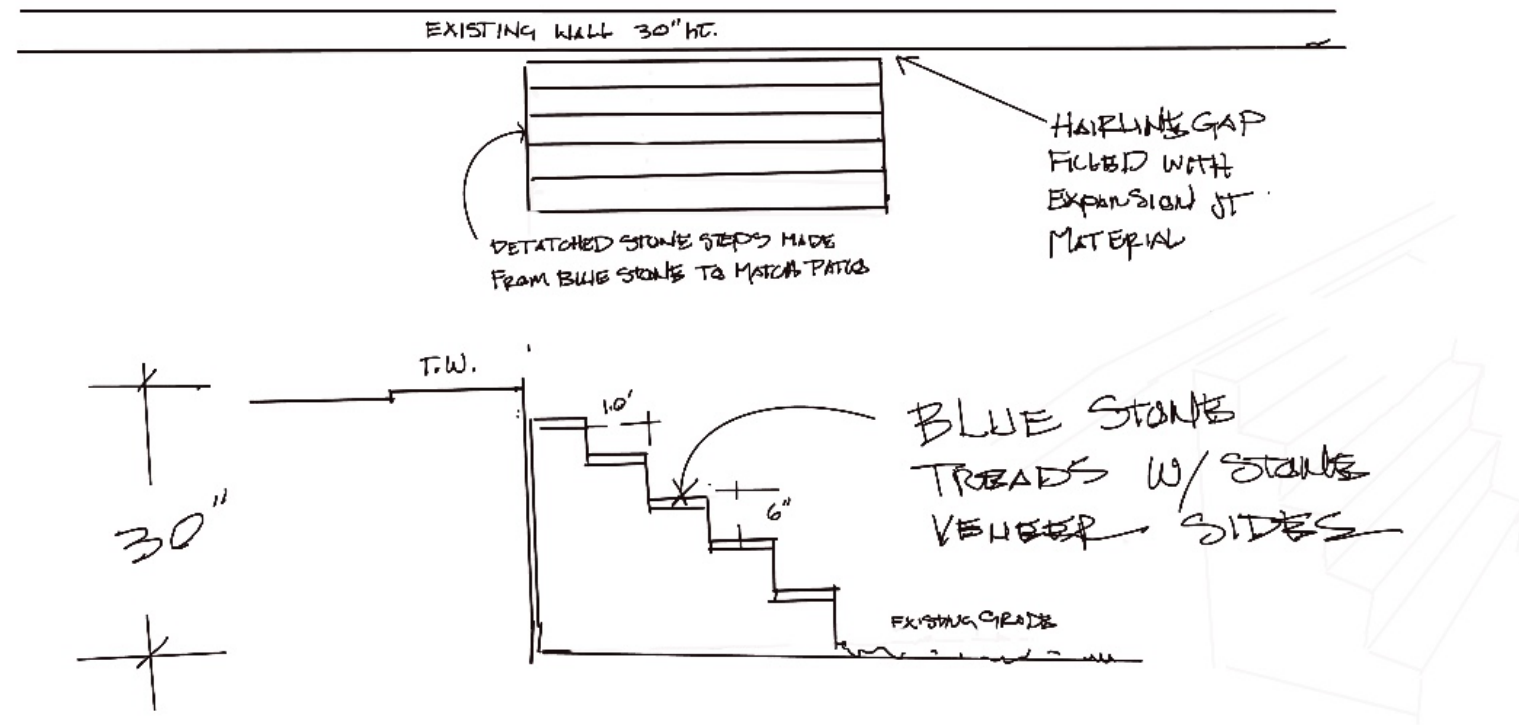 EXISTING WALL 30" HT.
HAIRLINE GAP
FILLED WITH
EXPANSION JT
MATERIAL
DETATCHED STONE STEPS MADE
FROM BLUE STONE TO MATCH PATIO
T.W.
1.0'
30"
BLUE STONE
TREADS W/ STONE
VENEER SIDES
6"
EXISTING GRADE